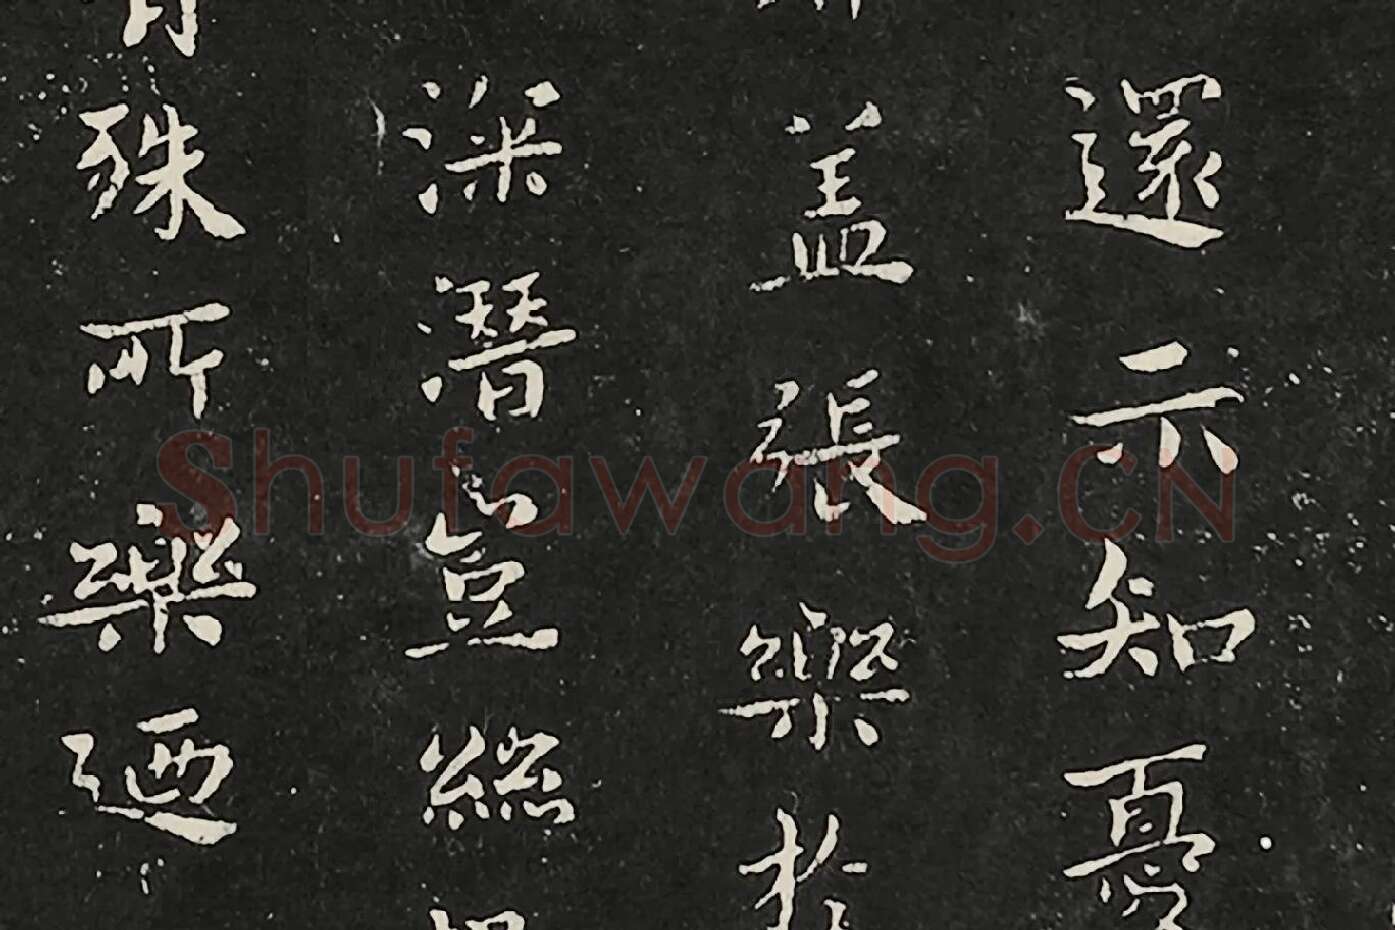 還示知憂
盖張樂於
深潛豈絲
殊所樂迺
Shufawang.CN